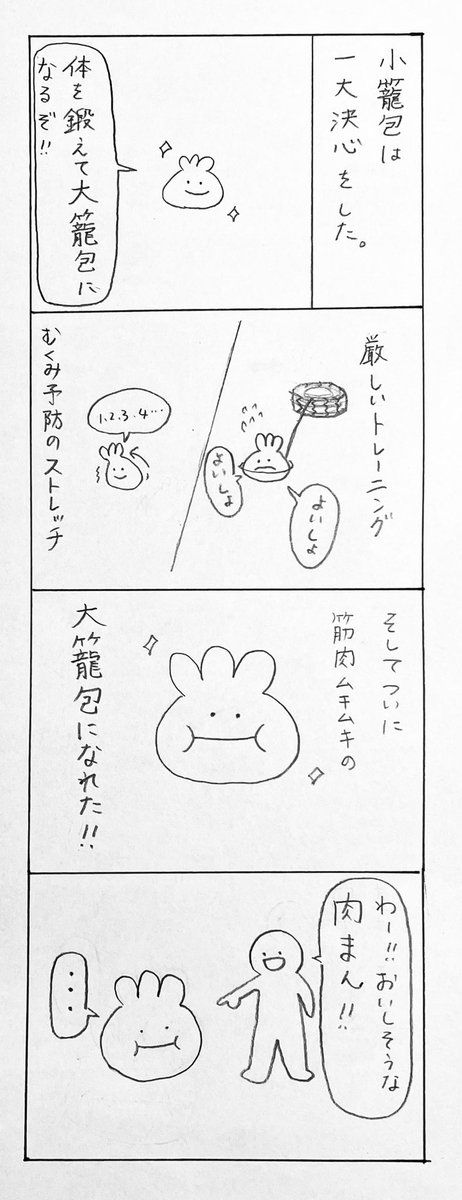 小籠包は
一大決心をした。
体を鍛えて大籠包に
なるぞ!!
厳しいトレーニング
よいしょ
よいしょ
1.2.3.4…
むくみ予防のストレッチ
そしてついに
筋肉ムキムキの
大籠包になれた!!
わー!!おいしそうな
肉まん!!
・・・